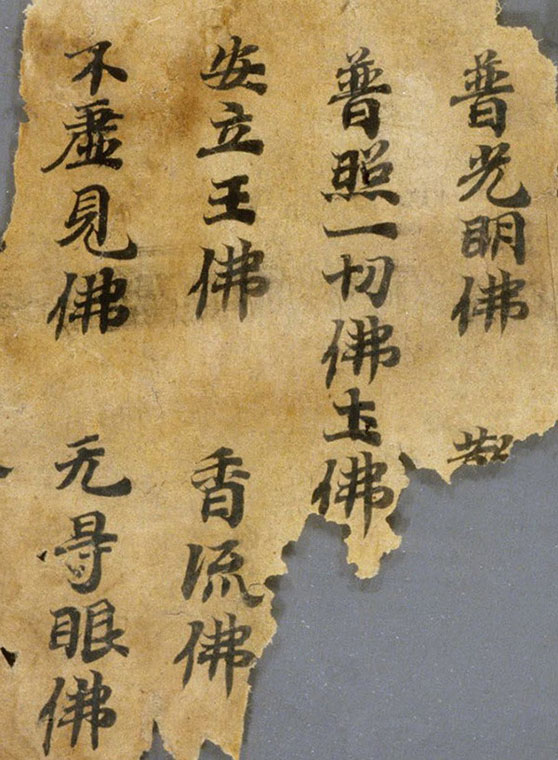 普光明佛
普照一切佛土佛
安立王佛 香流佛
不虛見佛 无㝵眼佛